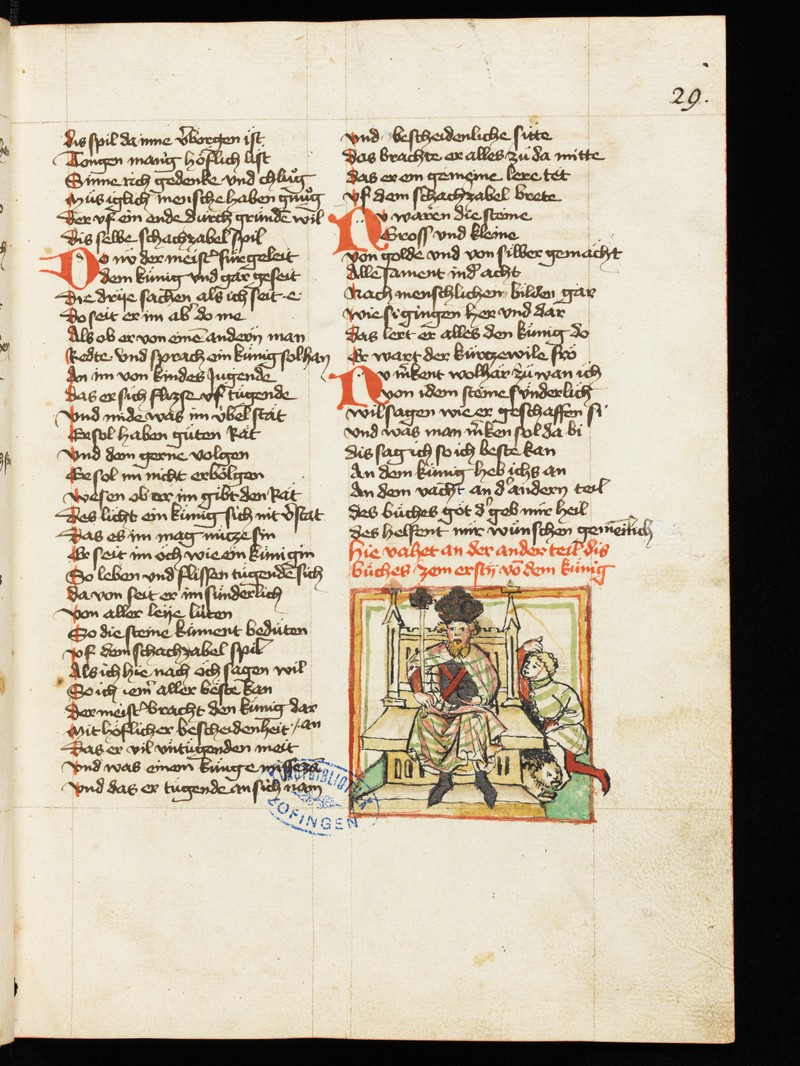 29.
dis spil da inne v̄borgen ist
Tongen manig höflich list
Sinne rich gedenke vnd chlůg
Mus iglich mensche haben gnůg
der vf ein ende durch gründē wil
dis selbe schachzabel spil
Do nv der meist͛ für geleit
dem künig vnd gar geseit
Die drije sachen als ich seit e
Do seit er im ab͛ do me
Als ob er von einē andern man
Redte vnd sprach ein künig sol han
An im von kindes Jugende
Das er sich flizse vf tugende
Vnd mide was im vbel stat
Er sol haben güten Rat
Vnd dem gerne volgen
Er sol im nicht erbolgen
Wesen ob er im gibt den Rat
Des licht ein künig sich nit v̄stat
Das es im mag nütze sin
Er seit im och wie ein künigin
So leben vnd flissen tugendē sich
da von seit er im sünderlich
Von aller leije lüten
So die steine künnent bedüten
Vf dem schachzabel spil
Als ich hie nach och sagen wil
So ich iem͛ aller beste kan
Der meist͛ bracht den künig dar
Mit höflicher bescheidenheit /an
Das er vil vntugenden meit
Vnd was einem künge misseza
Vnd das er tugende an sich nam
Vnd bescheidenliche sitte
Das brachte er alles zů da mitte
Das er ein gemeine lere tet
Vf dem schachzabel brete
Nv waren die steine
Gross vnd kleine
Von golde vnd von silber gemacht
Alle sament in d͛ acht
Nach menschlichen bilden gar
Wie si gingen her vnd dar
Das lert er alles den künig do
Er wart der kurtzewile fro
Nv m̄kent wol har zů wan ich
Von idem steine sunderlich
Wil sagen wie er geschaffen si
Vnd was man m̄ken sol da bi
dis sag ich so ich beste kan
An dem künig heb ichs an
An dem vacht an d͛ andern teil
des bůches got d͛ geb mir heil
des helfent mir wünschen gemeinlich
Hie vahet an der ander teil dis
bůches zem erstn̄ vō dem künig
STADTBIBLIOTHEK
ZOFINGEN